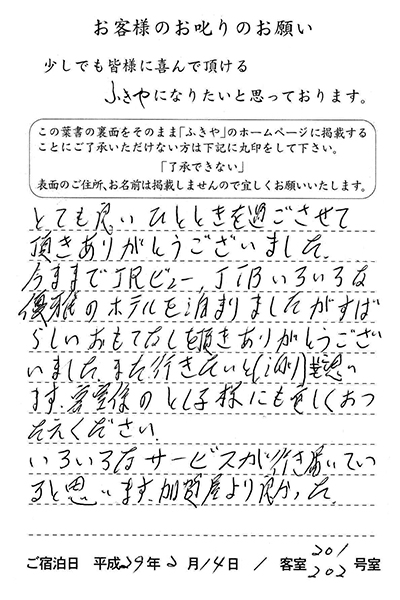 お客様のお叱りのお願い
少しでも皆様に喜んで頂ける
ふきやになりたいと思っております。
この葉書の裏面をそのまま「ふきや」のホームページに掲載する
ことにご了承いただけない方は下記に丸印をして下さい。
「了承できない」
表面のご住所、お名前は掲載しませんので宜しくお願いいたします。
とても良いひとときを過ごさせて
頂きありがとうございました。
今まで JRビュー、JTBいろいろな
優雅のホテルを泊まりましたがすば
らしいおもてなしを頂きありがとうござい
いました。また行きたいと(泊り)思い
ます。客室係のとし子様にも宜しくおつ
たえください。
いろいろなサービスが行き届いてい
ると思います。加賀屋より良かった。
ご宿泊日 平成29年2月14日 / 客室 201 202 号室